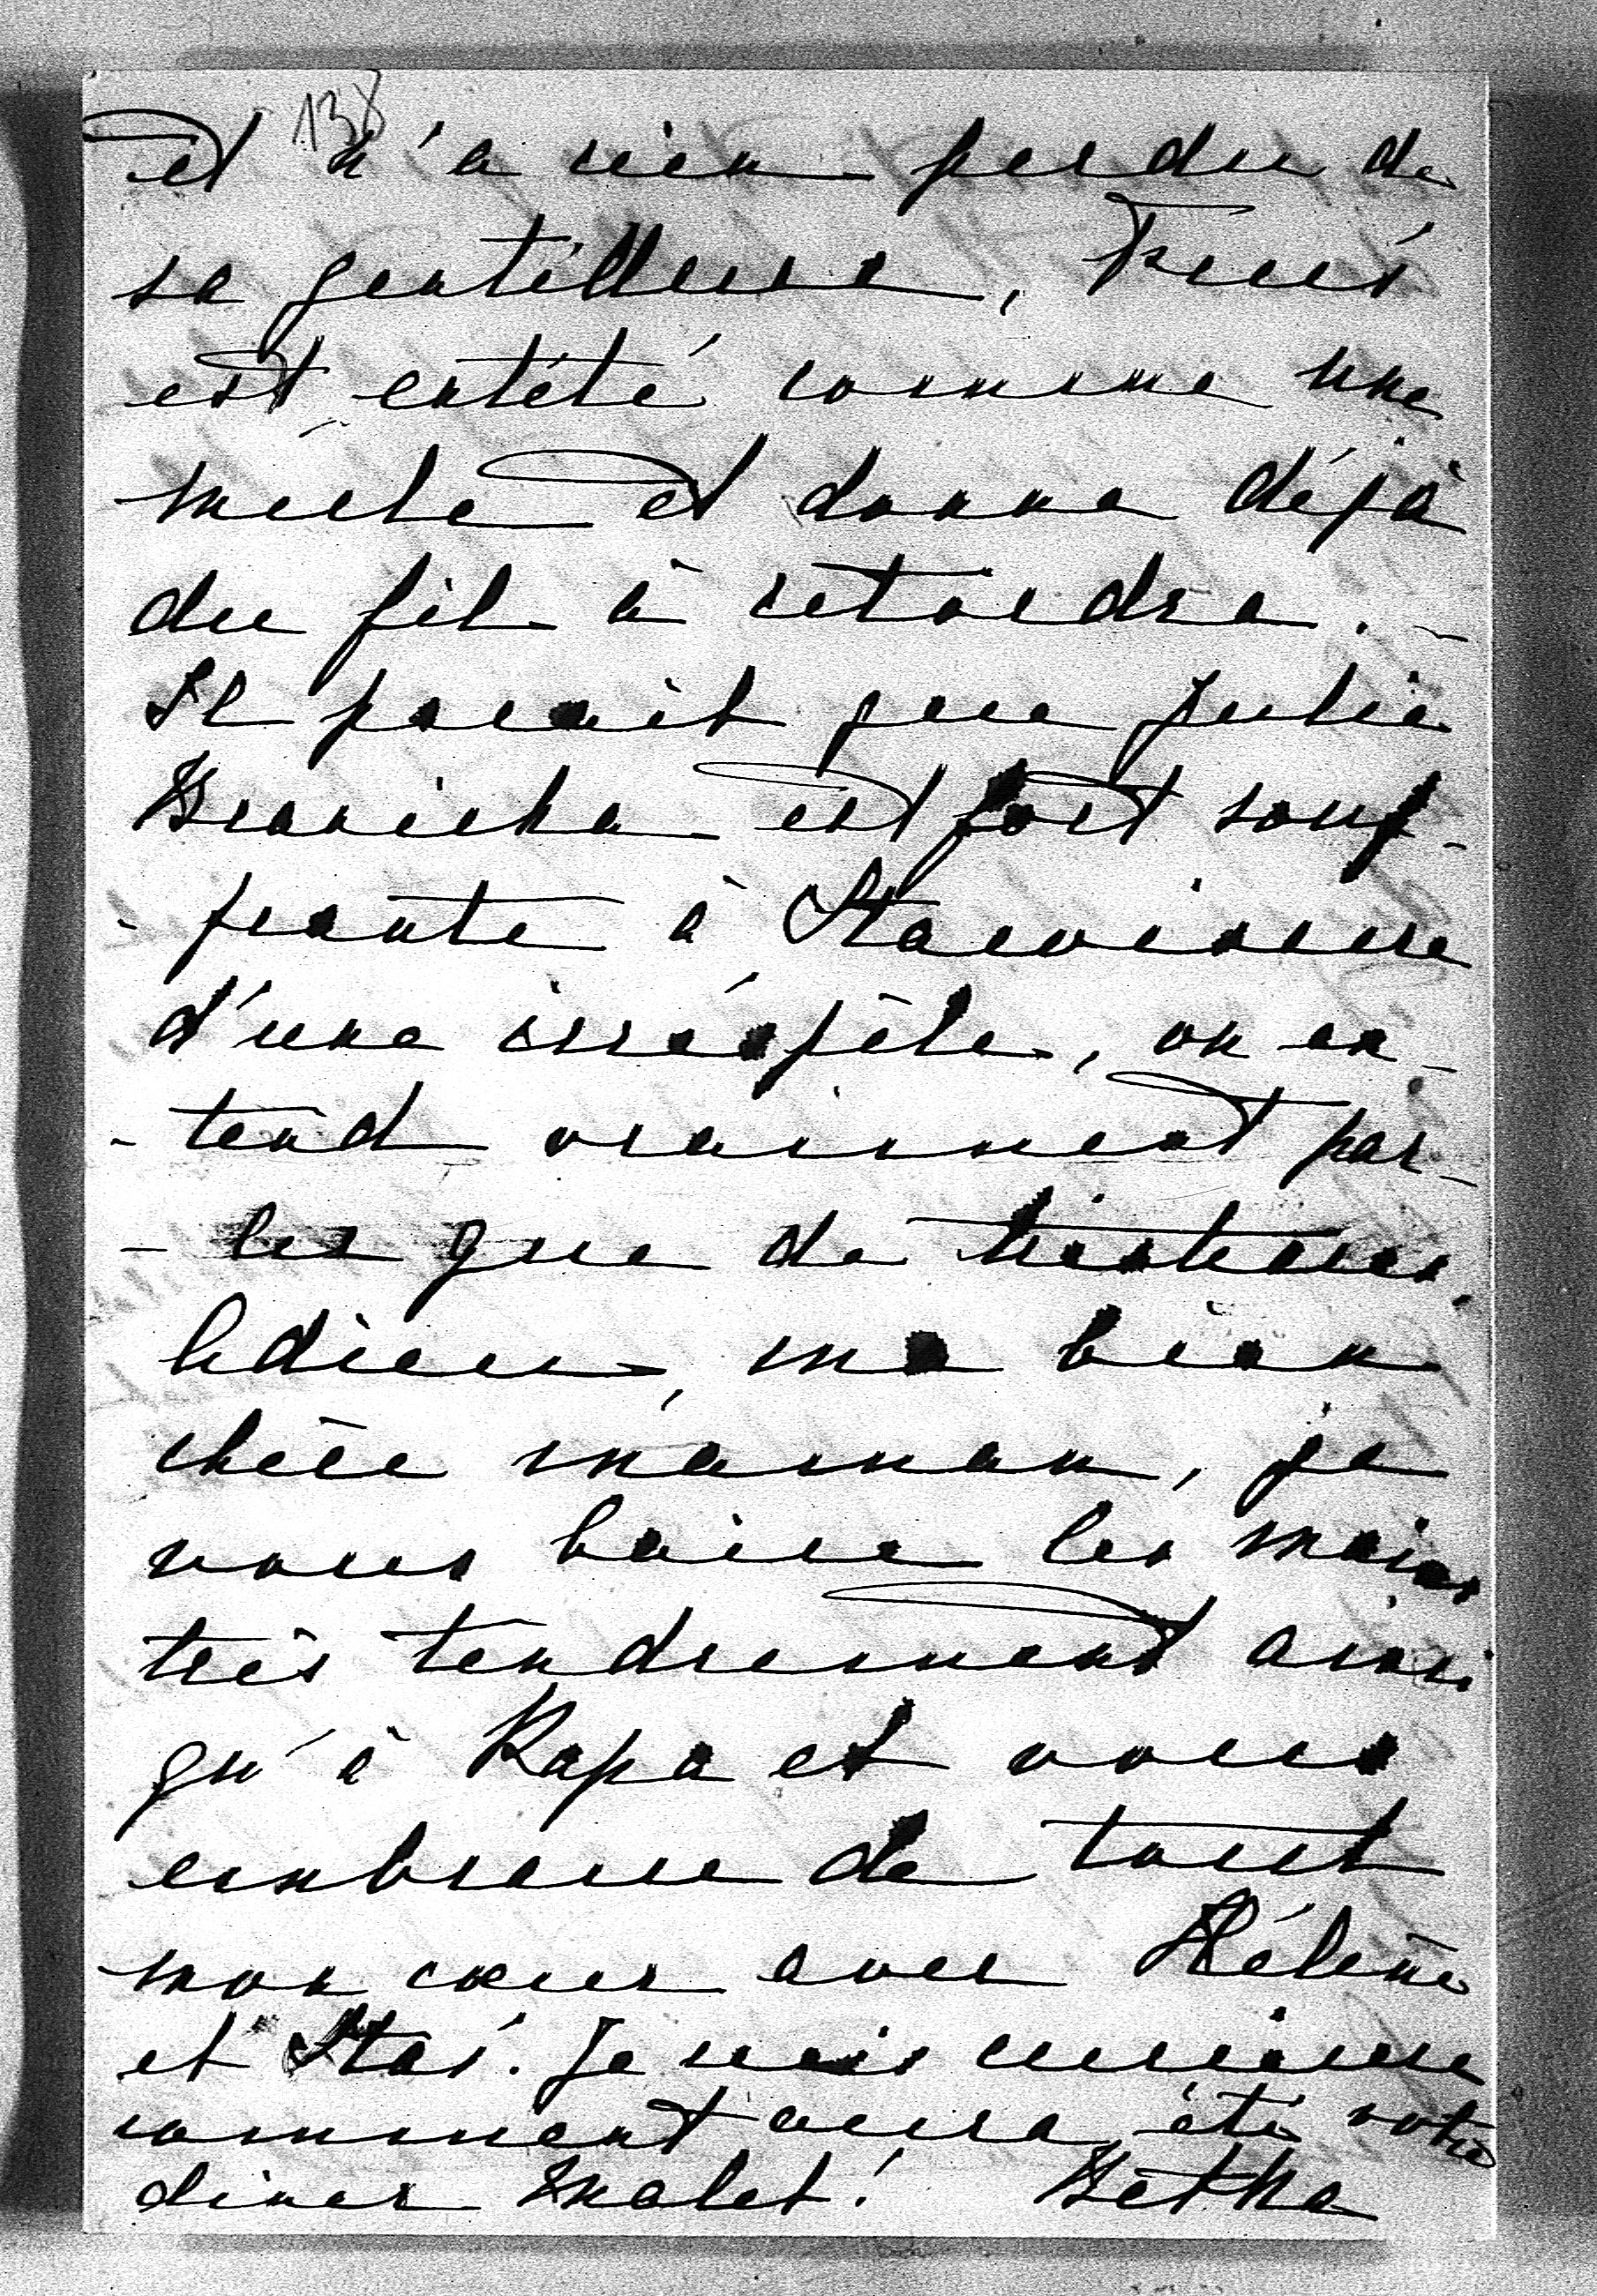 138
et n'a rien perdu de
sa gentillesse,
est entêté comme une
mule et donne déjà
du fil à retordre. –
Il parait que Julia
Branicka est fort souf-
- frante à Stawisscze
d'une irrésipèle, on en-
- tend vraiment par-
- ler que de tristesses.
Adieu, ma bien
chère maman, je
vous baise les mains
très tendrement ainsi
qu'à Papa et vous
embrasse de tout
mon cœur avec Hélène
et Stas. Je suis curieuse
comment aura été votre
diner Malet! Betka